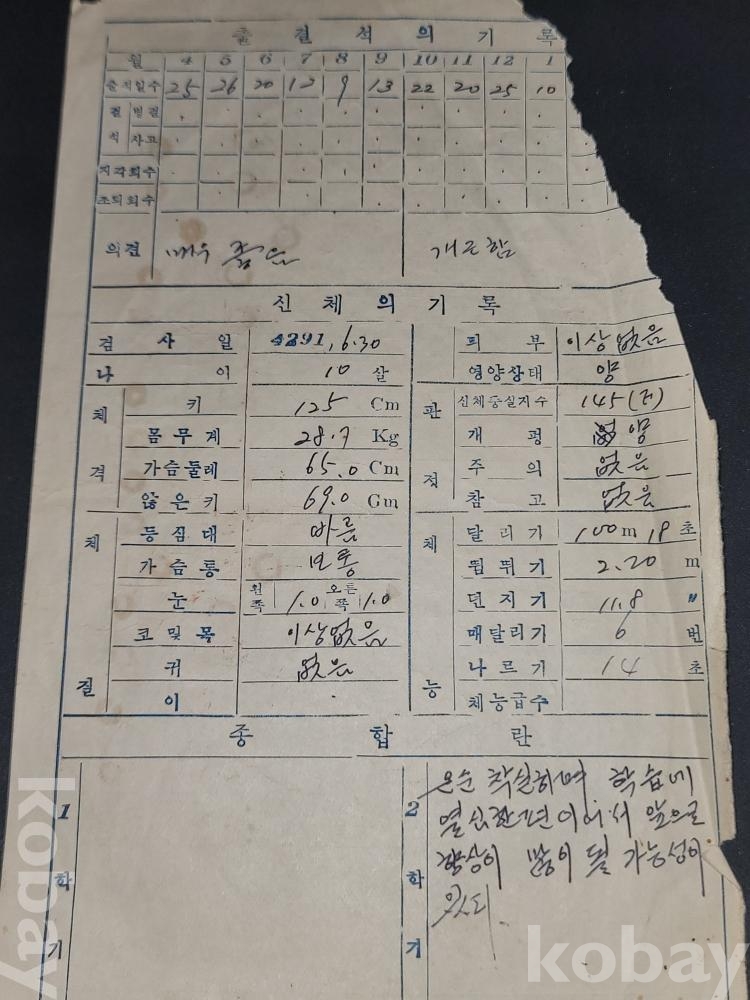 출결석의기록
월 4 5 6 7 8 9 10 11 12 1
출석일수 25 26 20 12 9 13 22 20 25 10
결석 병결
사고
지각회수
조퇴회수
의견 매우 좋음 개근함
신체의기록
검사일 4291, 6.30 피부 이상없음
나이 10 살 영양상태 양
체격 키 125 Cm 판정 신체충실지수 145
몸무게 28.7 Kg 개평 양
가슴둘레 65.0 Cm 주의 없음
앉은키 69.0 Gm 참고 없음
체질 등심대 바름 체능 달리기 100m 18 초
가슴통 보통 뜀뛰기 2.20 m
눈 왼쪽 1.0 오른쪽 1.0 던지기 11.8 〃
코및목 이상없음 매달리기 6 번
귀 없음 나르기 14 초
이 . 체능급수
종합란
1학기
2학기
온순 착실하며 학습에
열심한 편이어서 앞으로
향상이 많이 될 가능성이
있다.
kobay
kobay